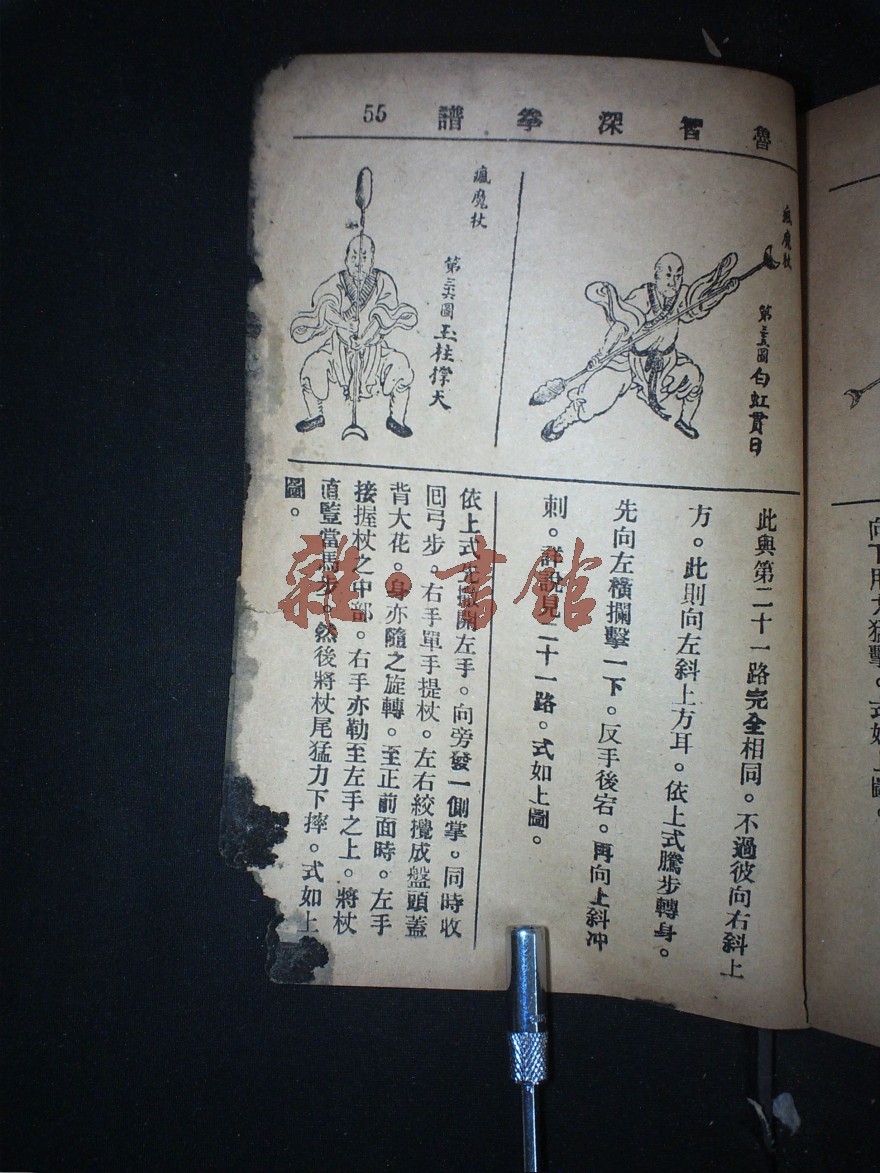 魯智深拳譜 55
瘋魔杖
第三五圖 白虹貫日
瘋魔杖
第三六圖 玉柱撑天
此與第二十一路完全相同。不過彼向右斜上
方。此則向左斜上方耳。依上式騰步轉身。
先向左橫攔擊一下。反手後宕。再向上斜冲
刺。詳說見二十一路。式如上圖。
依上式先撒開左手。向旁發一側掌。同時收
囘弓步。右手單手提杖。左右絞攪成盤頭蓋
背大花。身亦隨之旋轉。至正前面時。左手
接握杖之中部。右手亦勒至左手之上。將杖
直豎當馬步。然後將杖尾猛力下摔。式如上
圖。
雜·書館